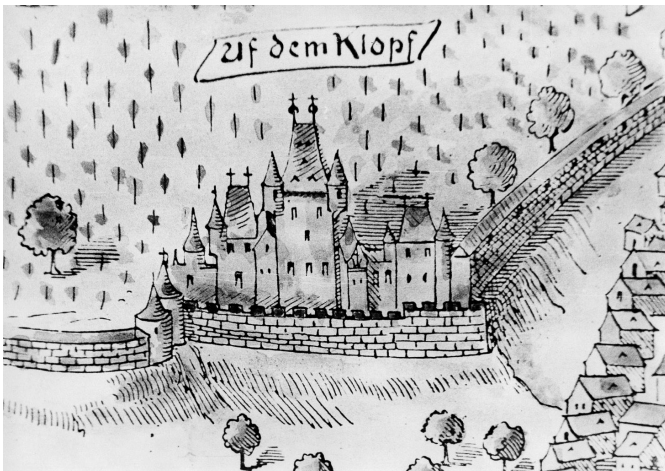 Uf dem Klopf